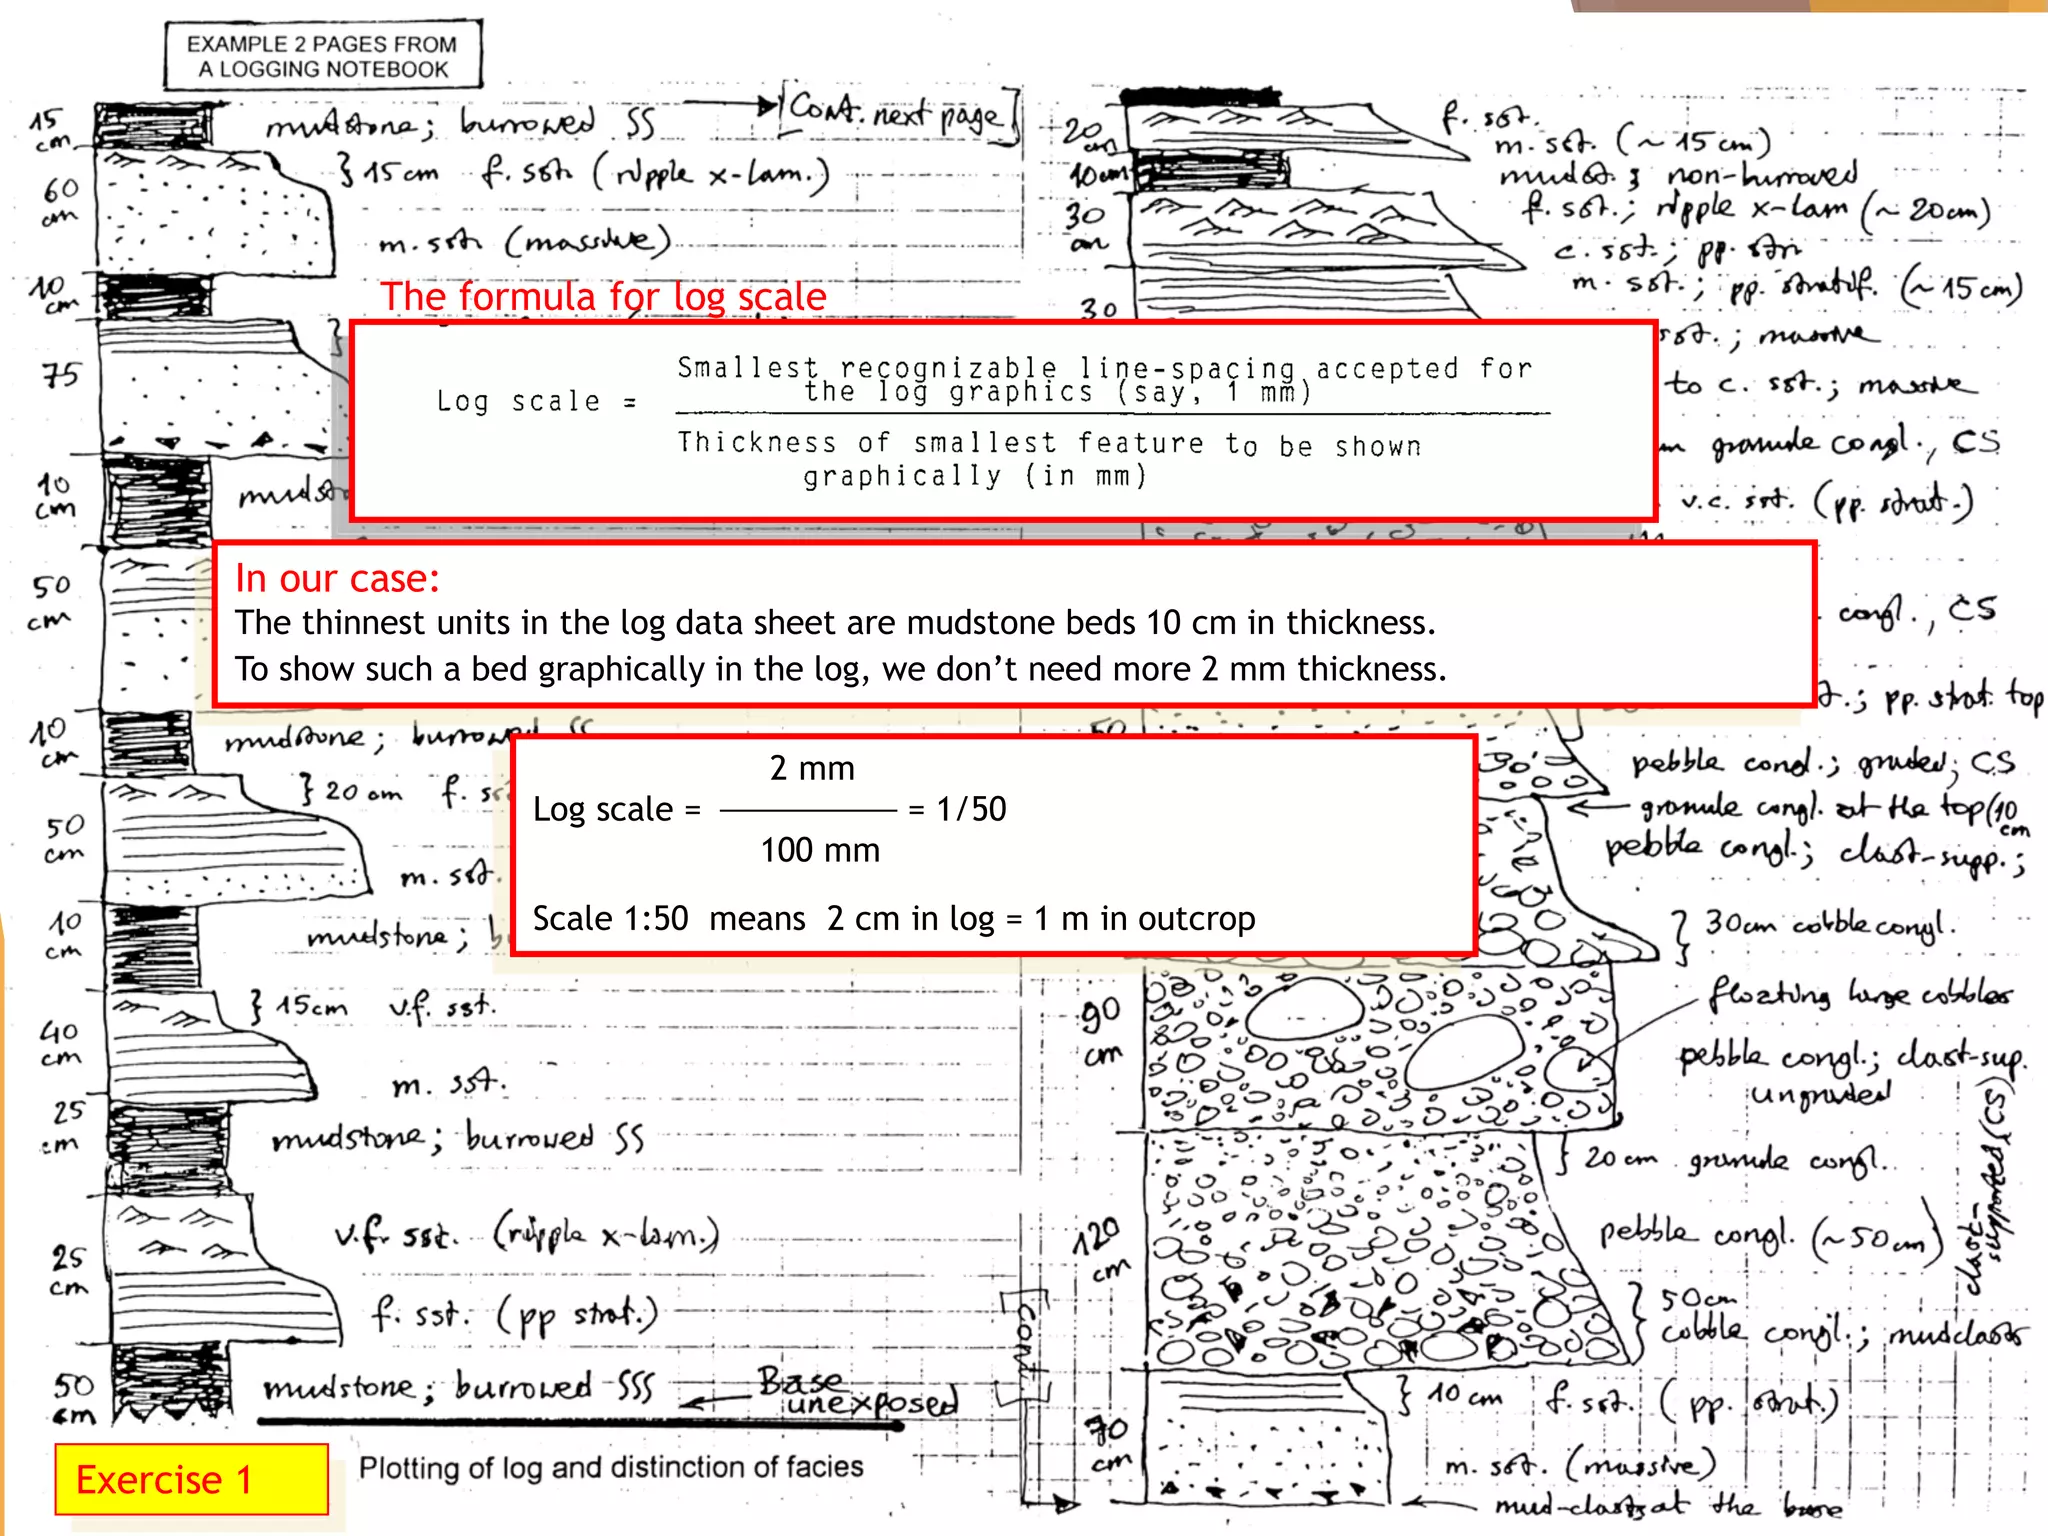 EXAMPLE 2 PAGES FROM
A LOGGING NOTEBOOK
15
cm
mudstone; burrowed SS
Cont. next page
60
cm
15cm f. sst. (ripple x-lam.)
m. sst. (massive)
10
cm
75
10
cm
50
cm
10
cm
mudstone; burrowed SS
20 cm
50
cm
m. sst.
10
cm
mudstone;
15cm v.f. sst.
40
cm
m. sst.
25
cm
mudstone; burrowed SS
v.f. sst. (ripple x-lam.)
25
cm
f. sst. (pp strat.)
50
cm
mudstone; burrowed SSS
Base
unexposed
The formula for log scale
Log scale =
Smallest recognizable line-spacing accepted for
the log graphics (say, 1 mm)
Thickness of smallest feature to be shown
graphically (in mm)
In our case:
The thinnest units in the log data sheet are mudstone beds 10 cm in thickness.
To show such a bed graphically in the log, we don’t need more 2 mm thickness.
2 mm
Log scale = = 1/50
100 mm
Scale 1:50 means 2 cm in log = 1 m in outcrop
20
cm
f. sst.
m. sst. (~15cm)
10cm
mudst; non-burrowed
30
cm
f. sst.; ripple x-lam (~20cm)
c. sst.; pp. str
m. sst.; pp. stratif. (~15cm)
30
sst.; massive
to c. sst.; massive
granule congl., CS
v.c. sst. (pp. strat.)
congl., CS
pp. strat. top
50
pebble congl.; graded; CS
granule congl. at the top (10
cm
pebble congl.; clast-supp.;
30cm cobble congl.
floating large cobbles
90
cm
pebble congl.; clast-sup.
ungraded
20cm granule congl.
120
cm
pebble congl. (~50cm)
clast-
supported (CS)
50cm
cobble congl.; mudclasts
CONT.
70
cm
10cm f. sst. (pp. strat.)
m. sst. (massive)
mud-clasts at the base
Exercise 1
Plotting of log and distinction of facies